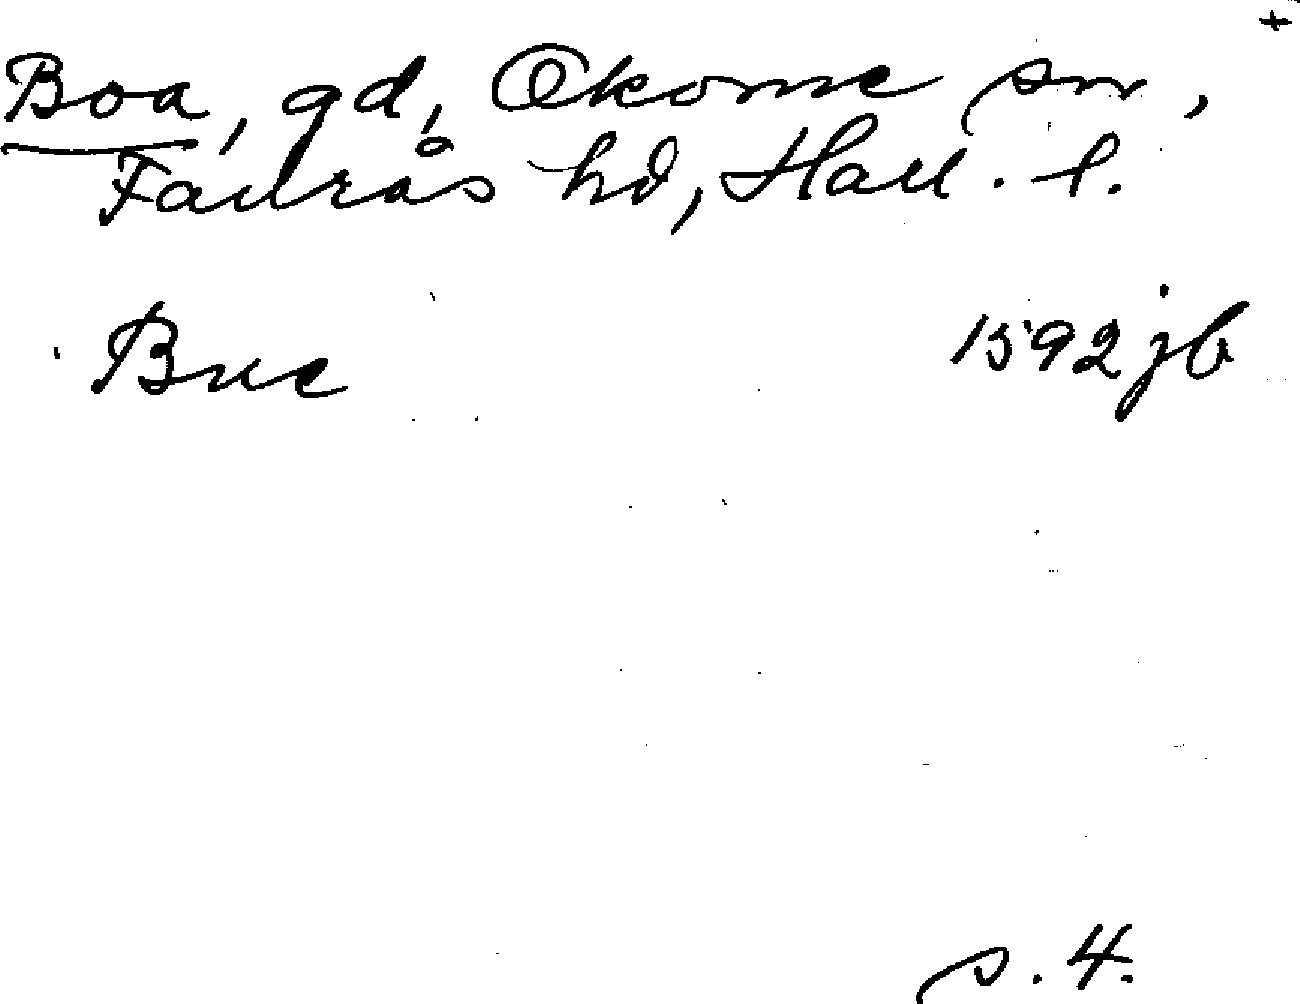 +
Boa, gd, Okome sn,
Faurås hd, Hall. l.
Bue 1592 jb
s. 4.